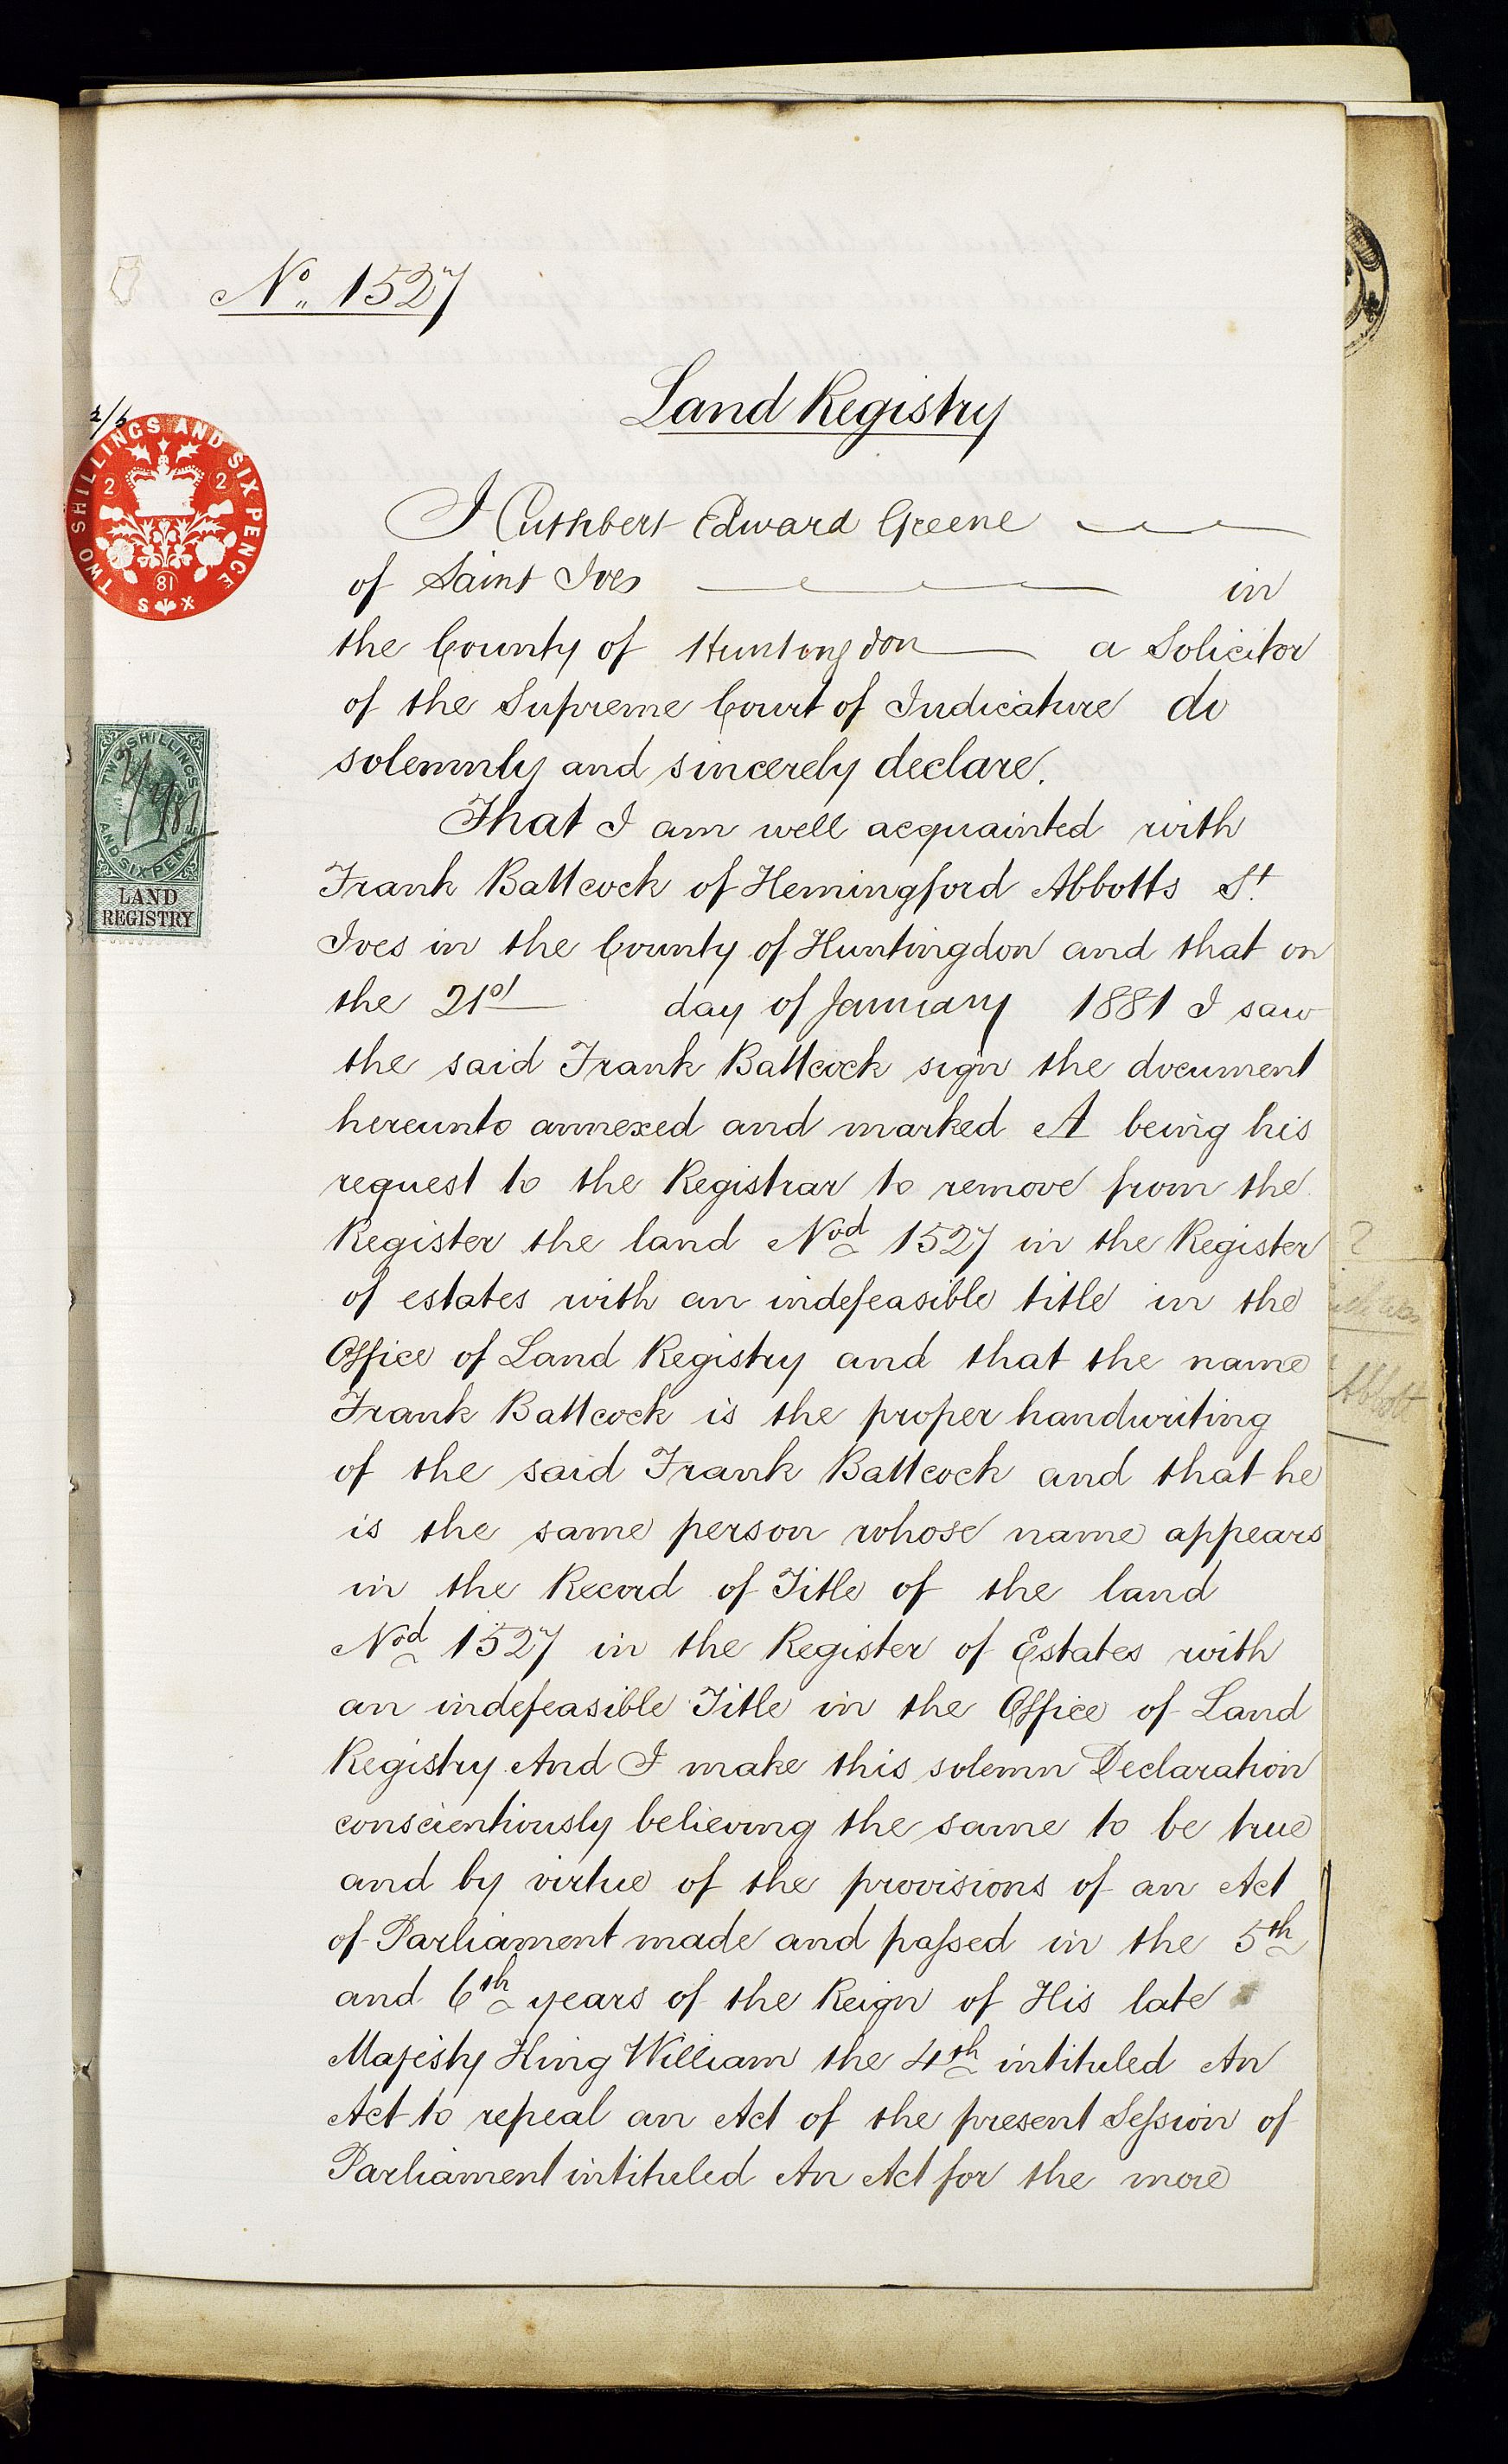 No. 1527
Land Registry
2/6
TWO SHILLINGS AND SIX PENCE
2 2
81
X S
I Cuthbert Edward Greene
of Saint Ives in
the County of Huntingdon a Solicitor
of the Supreme Court of Judicature do
solemnly and sincerely declare.
TWO SHILLINGS
AND SIX PENCE
LAND
REGISTRY
That I am well acquainted with
Frank Battcock of Hemingford Abbotts St.
Ives in the County of Huntingdon and that on
the 21st day of January 1881 I saw
the said Frank Battcock sign the document
hereunto annexed and marked A being his
request to the Registrar to remove from the
Register the land Nod 1527 in the Register
of estates with an indefeasible title in the
Office of Land Registry and that the name
Frank Battcock is the proper handwriting
of the said Frank Battcock and that he
is the same person whose name appears
in the Record of Title of the land
Nod 1527 in the Register of Estates with
an indefeasible Title in the Office of Land
Registry And I make this solemn Declaration
conscientiously believing the same to be true
and by virtue of the provisions of an Act
of Parliament made and passed in the 5th
and 6th years of the Reign of His late
Majesty King William the 4th intituled An
Act to repeal an Act of the present Session of
Parliament intituled An Act for the more
?
Abbott